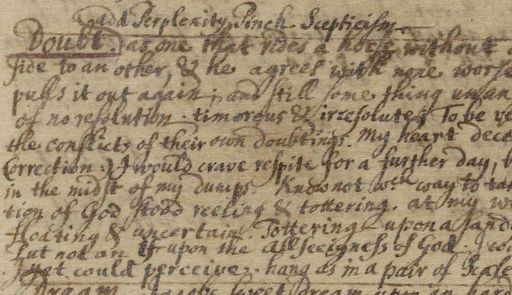 and Perplexity Pinch. Scepticism
Doubt. as one that rides a horse without a
side to an other, & he agrees with none worse
pulls it out again; and still some thing unan
of no resolution. timorous & irresolute. To be ve
the conflicts of their own doubtings. My heart deca
Correction. I would crave respite for a further day, b
in the midst of my dumps. Know not wch way to ta
tion of God stood reeling & tottering. at my w
floating & uncertain. Tottering upon a sand
Put not an if upon the Allseeigness of God.
yet could perceive. hang as in a pair of Scale
Dream. sweet Dream upon an hard